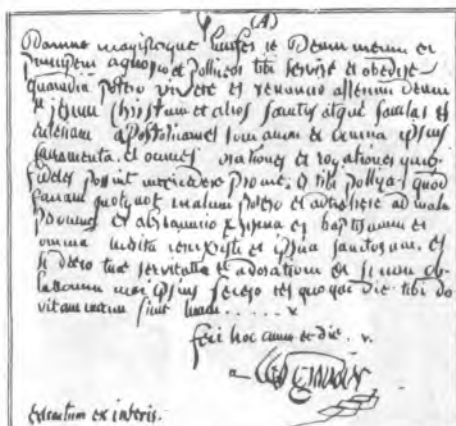 (A)
Domine magisterque Lucifer te Deum meum et
principem agnosco et polliceor tibi servire et obedire
quamdiu potero vivere et renuncio alterum Deum
et Jesum Christum et alios sanctos atque sanctas et
Ecclesiam Apostolicam et romanam et omnia ipsius
sacramenta et omnes orationes et rogationes quib
fideles possint intercedere pro me et tibi polliceor quod
faciam quotquot malum potero et attrahere ad mala
per omnes et abrenuncio chrisma et baptismum et
omnia merita Jesu Christi et ipsius sanctorum et
si deero tuae servituti et adorationi et si non ob
lationem mei ipsius fecero ter quoque die tibi do
vitam meam sicut tuam
feci hoc anno et die
Extractum ex inferis.